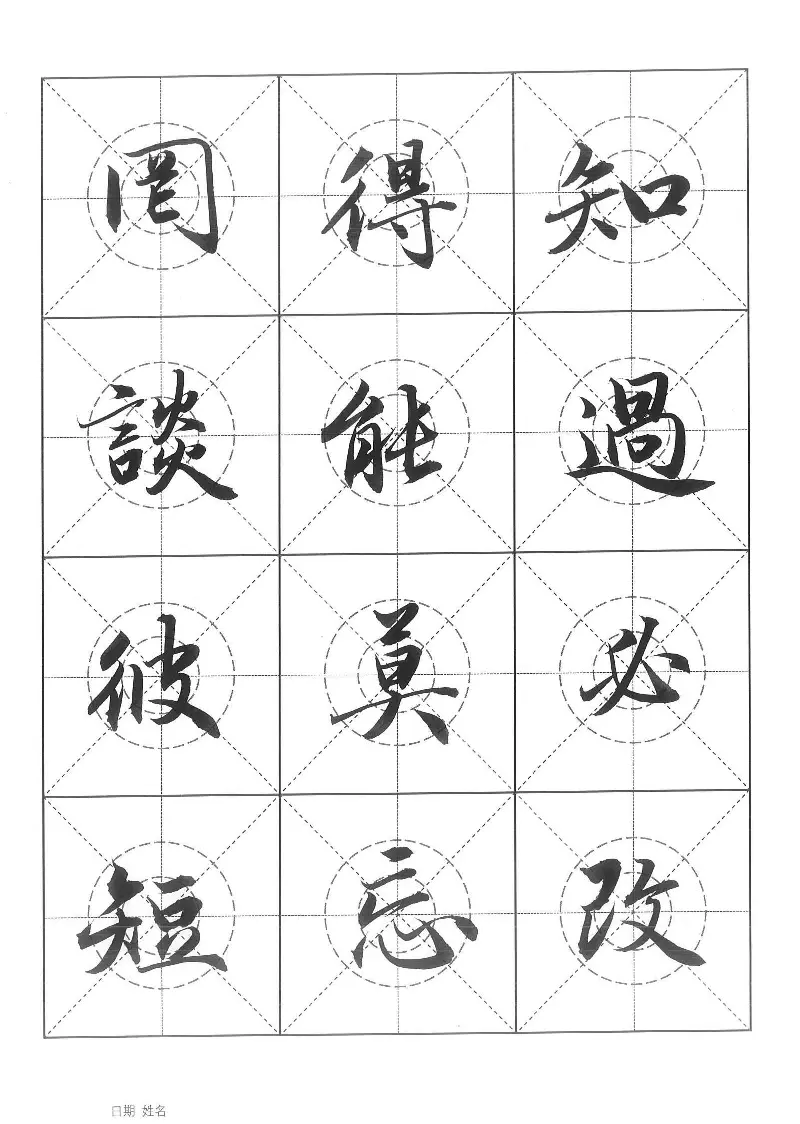 知過必改
得能莫忘
罔談彼短
日期 姓名